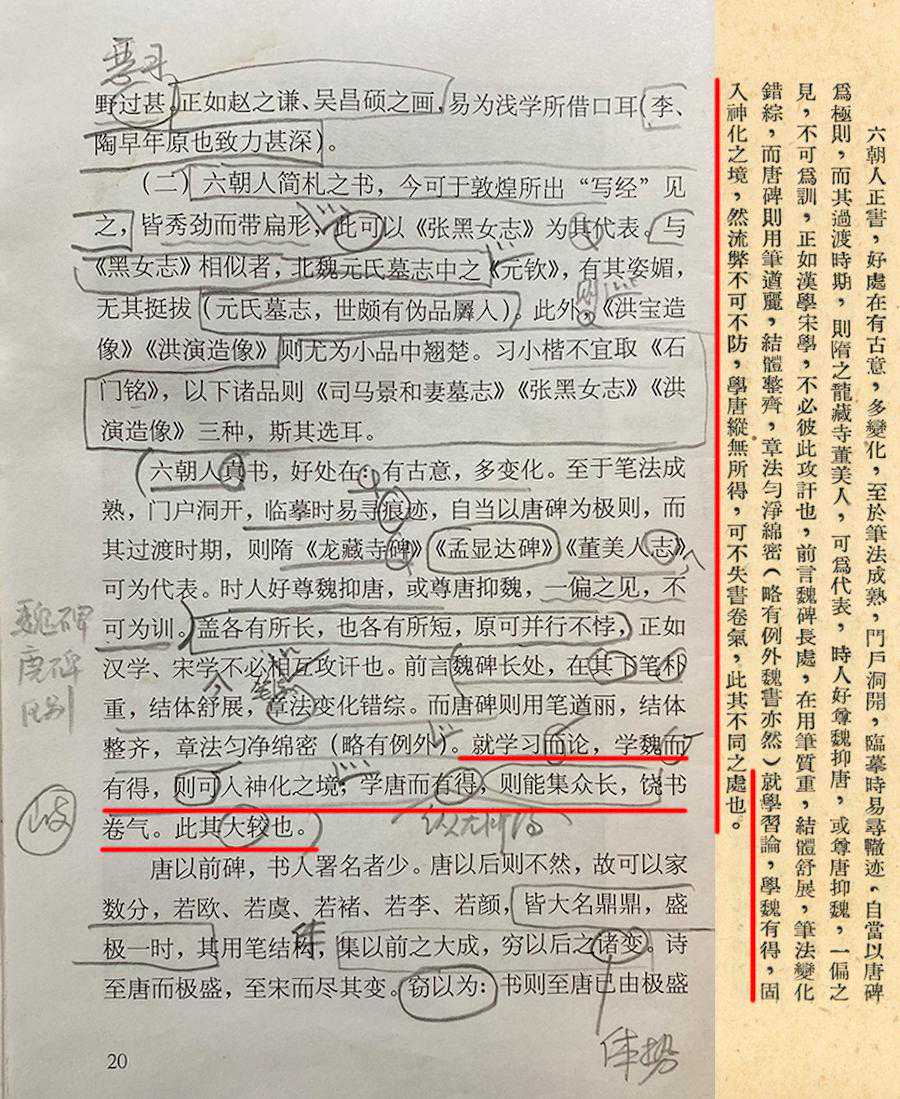 野过甚。正如赵之谦、吴昌硕之画，易为浅学所借口耳（李、
陶早年原也致力甚深）。
（二）六朝人简札之书，今可于敦煌所出“写经”见
之，皆秀劲而带扁形，此可以《张黑女志》为其代表。与
《黑女志》相似者，北魏元氏墓志中之《元钦》，有其姿媚，
无其挺拔（元氏墓志，世颇有伪品羼入）。此外，《洪宝造
像》《洪演造像》则尤为小品中翘楚。习小楷不宜取《石
门铭》，以下诸品则《司马景和妻墓志》《张黑女志》《洪
演造像》三种，斯其选耳。
六朝人真书，好处在：有古意，多变化。至于笔法成
熟，门户洞开，临摹时易寻痕迹，自当以唐碑为极则，而
其过渡时期，则隋《龙藏寺碑》《孟显达碑》《董美人志》
可为代表。时人好尊魏抑唐，或尊唐抑魏，一偏之见，不
可为训。盖各有所长，也各有所短，原可并行不悖，正如
汉学、宋学不必相互攻讦也。前言魏碑长处，在其下笔朴
重，结体舒展，章法变化错综。而唐碑则用笔遒丽，结体
整齐，章法匀净绵密（略有例外）。就学习而论，学魏而
有得，则可入神化之境；学唐而有得，则能集众长，饶书
卷气。此其大较也。
唐以前碑，书人署名者少。唐以后则不然，故可以家
数分，若欧、若虞、若褚、若李、若颜，皆大名鼎鼎，盛
极一时，其用笔结构，集以前之大成，穷以后之诸变。诗
至唐而极盛，至宋而尽其变。窃以为：书则至唐已由极盛
20
魏碑
唐碑
区别
体势
六朝人正書，好處在有古意，多變化，至於筆法成熟，門戶洞開，臨摹時易尋轍迹，自當以唐碑
爲極則，而其過渡時期，則隋之龍藏寺董美人，可爲代表，時人好尊魏抑唐，或尊唐抑魏，一偏之
見，不可爲訓，正如漢學宋學，不必彼此攻訐也，前言魏碑長處，在用筆質重，結體舒展，筆法變化
錯綜，而唐碑則用筆遒麗，結體整齊，章法勻淨綿密（略有例外魏書亦然）就學習論，學魏有得，固
入神化之境，然流弊不可不防，學唐縱無所得，可不失書卷氣，此其不同之處也。